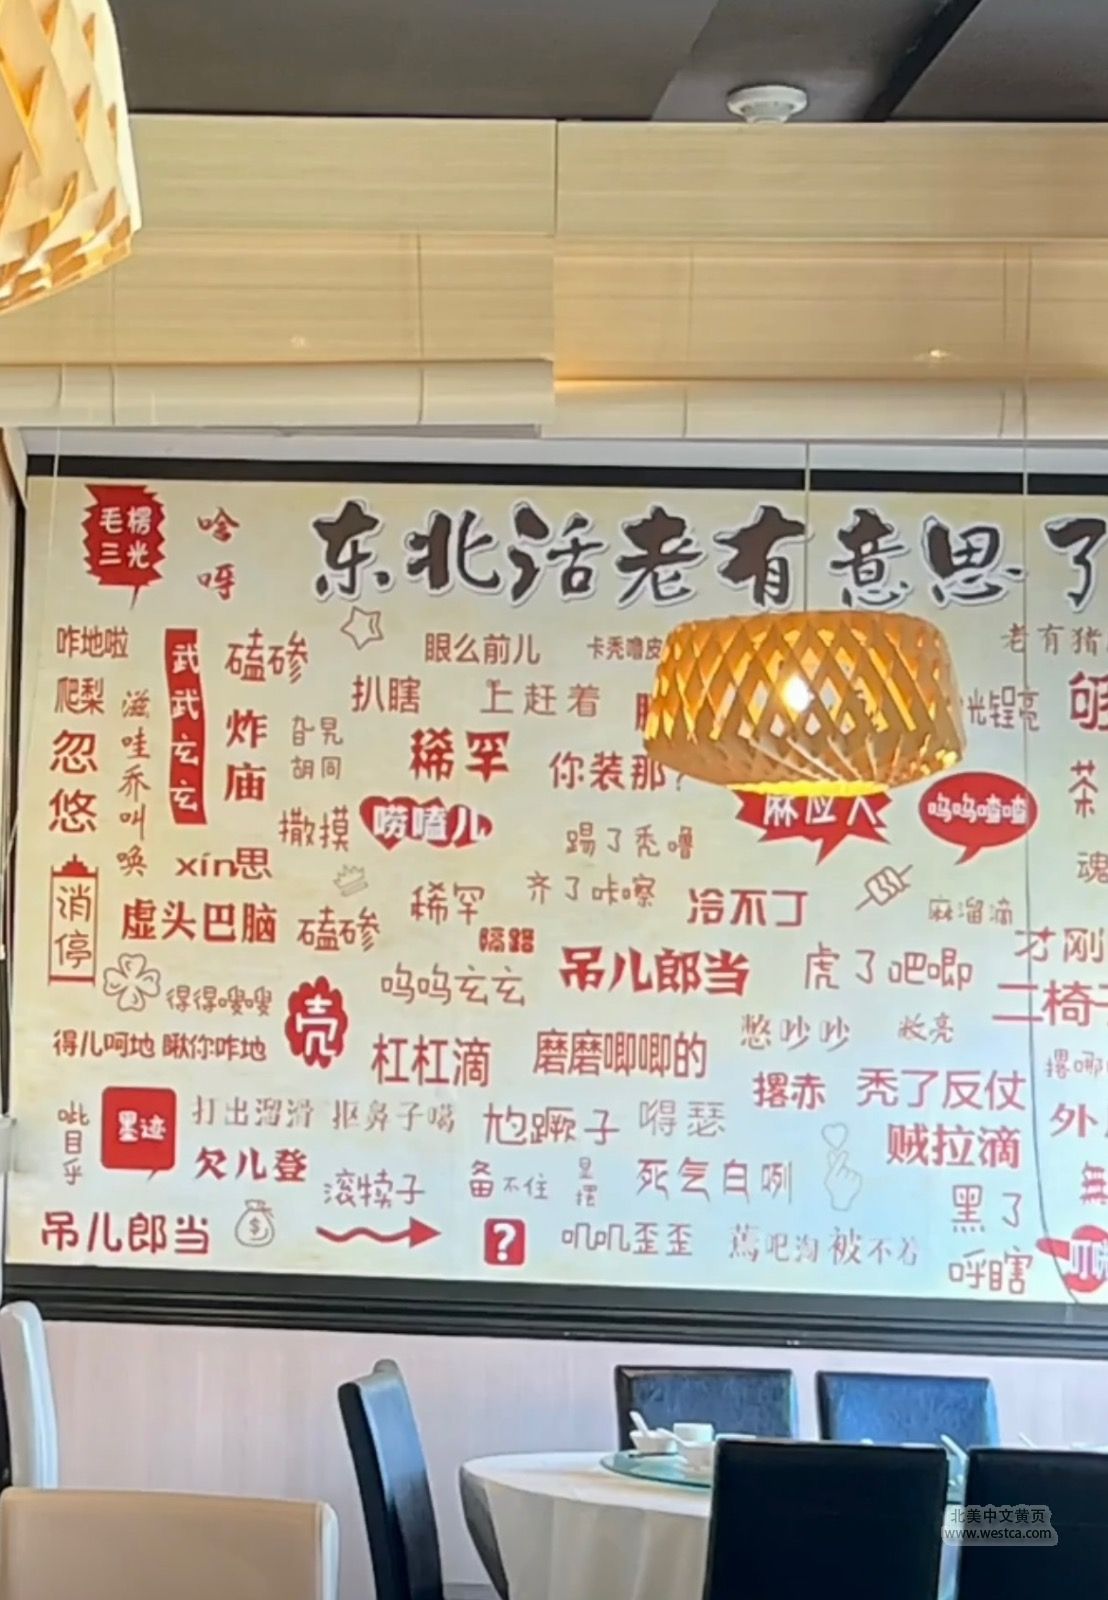 毛楞
三光
啥
呀
东北话老有意思了
咋地啦
武武玄玄
磕碜
眼么前儿
卡秃噜皮
老有猪
爬梨
滋哇乔叫唤
扒瞎
上赶着
光锃亮
够
忽悠
炸庙
旮旯
胡同
稀罕
你装那?
茶
撒摸
唠嗑儿
踢了秃噜
麻应人
呜呜喳喳
xín思
魂
消停
虚头巴脑
磕碜
稀罕
齐了咔嚓
冷不丁
麻溜滴
隔路
吊儿郎当
虎了吧唧
才刚
得得嗖嗖
壳
呜呜玄玄
二椅子
得儿呵地
瞅你咋地
杠杠滴
磨磨唧唧的
憋吵吵
敞亮
撂哪
呲目乎
墨迹
打出溜滑
抠鼻子嘎
尥蹶子
嘚瑟
撂赤
秃了反仗
外
欠儿登
滚犊子
备不住
显摆
死气白咧
贼拉滴
黑了
無
吊儿郎当
?
叽叽歪歪
蔫吧淘
被不住
呼瞎
北美中文黄页
www.westca.com